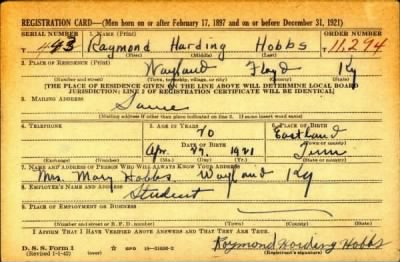 REGISTRATION CARD—(Men born on or after February 17, 1897 and on or before December 31, 1921)
SERIAL NUMBER 1. NAME (Print) ORDER NUMBER
493 Raymond Harding Hobbs 11,294
(First) (Middle) (Last)
2. PLACE OF RESIDENCE (Print)
Wayland Floyd Ky
(Number and street) (Town, township, village, or city) (County) (State)
[THE PLACE OF RESIDENCE GIVEN ON THE LINE ABOVE WILL DETERMINE LOCAL BOARD
JURISDICTION; LINE 2 OF REGISTRATION CERTIFICATE WILL BE IDENTICAL]
3. MAILING ADDRESS
Same
[Mailing address if other than place indicated on line 2. If same insert word same]
4. TELEPHONE 5. AGE IN YEARS 6. PLACE OF BIRTH
20 Eastland
DATE OF BIRTH (Town or county)
Apr. 29, 1921 Tenn
(Exchange) (Number) (Mo.) (Day) (Yr.) (State or country)
7. NAME AND ADDRESS OF PERSON WHO WILL ALWAYS KNOW YOUR ADDRESS
Mrs. Mary Hobbs, Wayland Ky
8. EMPLOYER'S NAME AND ADDRESS
Student
9. PLACE OF EMPLOYMENT OR BUSINESS
(Number and street or R. F. D. number) (Town) (County) (State)
I AFFIRM THAT I HAVE VERIFIED ABOVE ANSWERS AND THAT THEY ARE TRUE.
D. S. S. Form 1 GPO
(Revised 1-1-42) (Registrant's signature)
Raymond Harding Hobbs